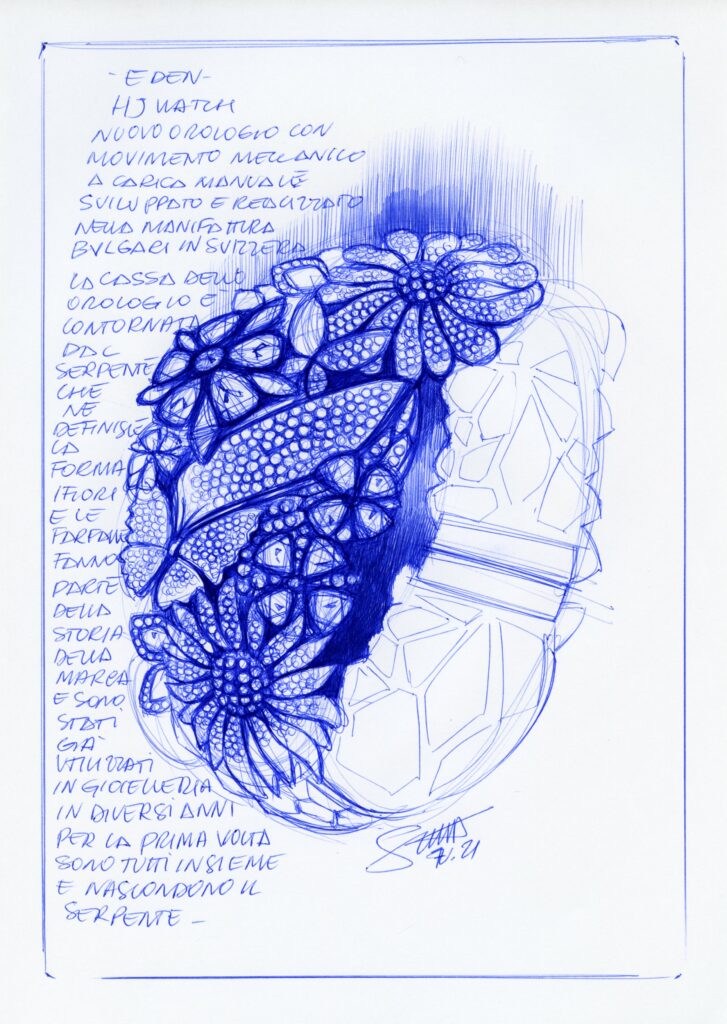 - EDEN -
HJ WATCH
NUOVO OROLOGIO CON
MOVIMENTO MECCANICO
A CARICA MANUALE
SVILUPPATO E REALIZZATO
NELLA MANIFATTURA
BVLGARI IN SVIZZERA
LA CASSA DELLO
OROLOGIO E
CONTORNATA
DAL
SERPENTE
CHE
NE
DEFINISCE
LA
FORMA
I FIORI
E LE
FARFALLE
FANNO
PARTE
DELLA
STORIA
DELLA
MARCA
E SONO
STATI
GIÀ
UTILIZZATI
IN GIOIELLERIA
IN DIVERSI ANNI
PER LA PRIMA VOLTA
SONO TUTTI INSIEME
E NASCONDONO IL
SERPENTE -
21